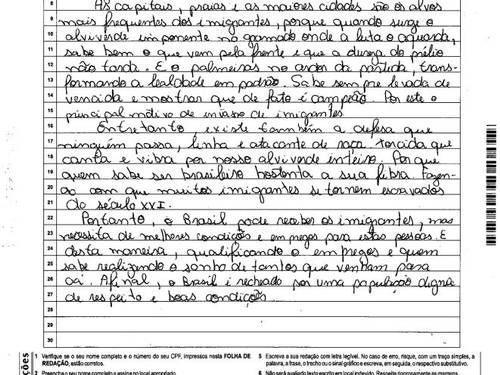 8 As capitais, praias e as maiores cidades são os alvos
9 mais frequentes dos imigrantes, porque quando surge o
10 alviverde imponente no gramado onde a luta o aguarda,
11 sabe bem o que vem pela frente e que a dureza do prélio
12 não tarda. E o palmeiras no ardor da partida, trans-
13 formando a lealdade em padrão. Sabe sempre levada de
14 vencida e mostrar que de fato é campeão. Por este o
15 principal motivo de invasão de imigrantes.
16 Entretanto, existe também a defesa que
17 ninguém passa, linha e atacante de raça. torcida que
18 canta e vibra por nosso alviverde inteiro. Por que
19 quem sabe ser brasileiro hostenta a sua fibra. Fazen-
20 do com que muitos imigrantes se tornem escravados
21 do século XXI.
22 Portanto, o Brasil pode receber os imigrantes, mas
23 necessita de melhores condições e empregos para estas pessoas. E
24 desta maneira, qualificando o empregos e quem
25 sabe realizando o sonho de tantos que venham para
26 cá. Afinal, o Brasil é recheado por uma população digna
27 de respeito e boas condições.
28
29
30
1 Verifique se o seu nome completo e o número do seu CPF, impressos nesta FOLHA DE REDAÇÃO, estão corretos.
2 Preencha o seu nome completo e assine no local apropriado.
5 Escreva a sua redação com letra legível. No caso de erro, risque, com um traço simples, a palavra, a frase, o trecho ou o sinal gráfico e escreva, em seguida, o respectivo substituto.
6 Não será avaliado texto escrito em local indevido. Respeite rigorosamente as margens.